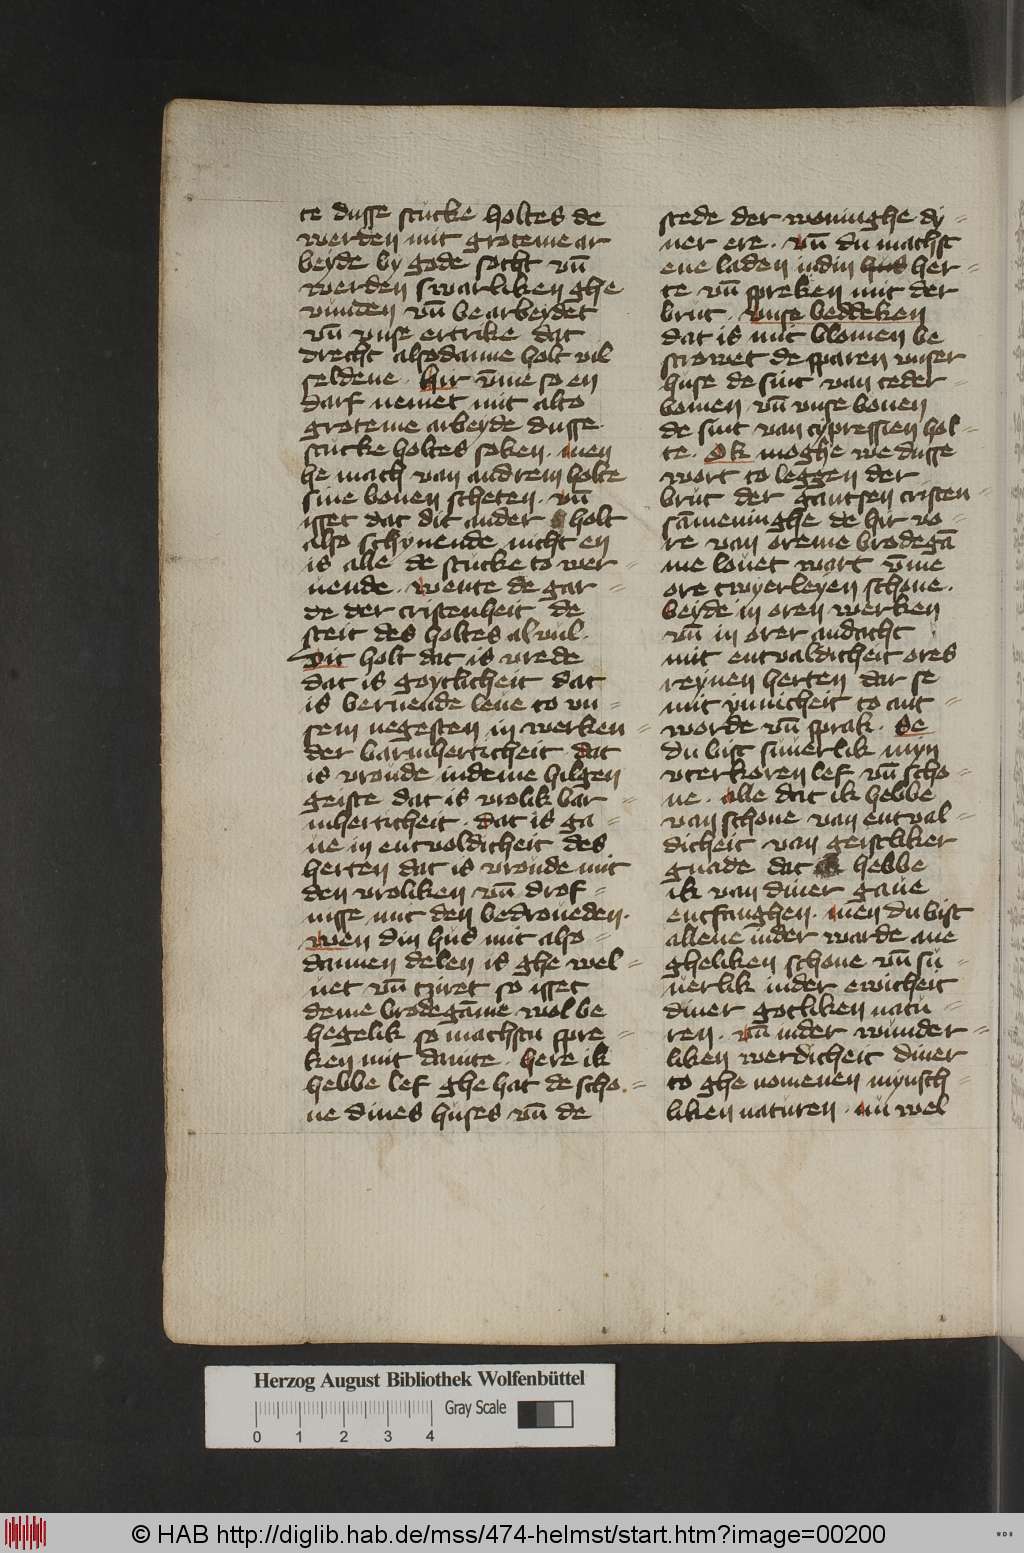 te dusse stucke holtes de
werden mit groteme ar
beyde by gode socht vn̄
werden swarliken ghe
vunden vn̄ be arbeydet
vn̄ vnse ertrike dat
drecht alsodanne holt vil
seldene · hir vm̄e so en
darf nemet mit alto
groteme arbeyde dusse
stucke holtes soken · men
he mach van andrem holte
sine bonen scheten · vn̄
isset dat dit ander holt
also schynende nicht en
is alle de stucke to wer=
nende · wente de gar=
de der cristenheit de
steit des holtes al vul ·
Dit holt dat is vrede
dat is goytlicheit dat
is bernende leue to vn=
sem negesten in werken=
der barmherticheit dat
is vroude in deme hilgen
geiste dat is vrolik bar=
mherticheit · dat is ga=
ne in entvoldicheit des
herten dat is vroude mit
den vroliken vn̄ drof=
nisse mit den bedroueden ·
wen din hus mit also=
dannen delen is ghe wel=
uet vn̄ tziret so isset
deme brodegāme wol be
hegelik so machstu spre=
ken mit dauite · here ik
hebbe lef ghe hat de scho=
ne dines huses vn̄ de
stede der woninghe dy=
ner ere · vn̄ du machst
ene laden in din hus her=
te vn̄ spreken mit der
brut · vnse beddeken
dat is mit blomen be
strowet de sparen vnser
huse de sint van ceder=
bomen vn̄ vnse bonen
de sint van cypressien hol=
te · Ok moghe we dusse
wort to leggen der
brut der gantsen cristen=
sāmeninghe de hir vo=
re van oreme brodegā
me louet wart vm̄e
ore twyerleyen schone ·
beyde in oren werken
vn̄ in orer andacht
mit entvaldicheit ores
reynen herten dar se
mit ynnicheit to ant=
worde vn̄ sprak · Se
du bist suuerlik myn
vterkoren lef vn̄ scho=
ne · alle dat ik hebbe
van schone van entval=
dicheit van geistliker
gnade dat hebbe
ik van diner gaue
entfanghen · men du bist
allene in der warde ane
gheliken schone vn̄ su=
uerlik in der ewicheit
diner gotliken natu=
ren · vn̄ in der wunder=
liken werdicheit diner
to ghe nomenen mynsch=
liken naturen · nu wel
Herzog August Bibliothek Wolfenbüttel
Gray Scale
0 1 2 3 4
© HAB http://diglib.hab.de/mss/474-helmst/start.htm?image=00200
WDB